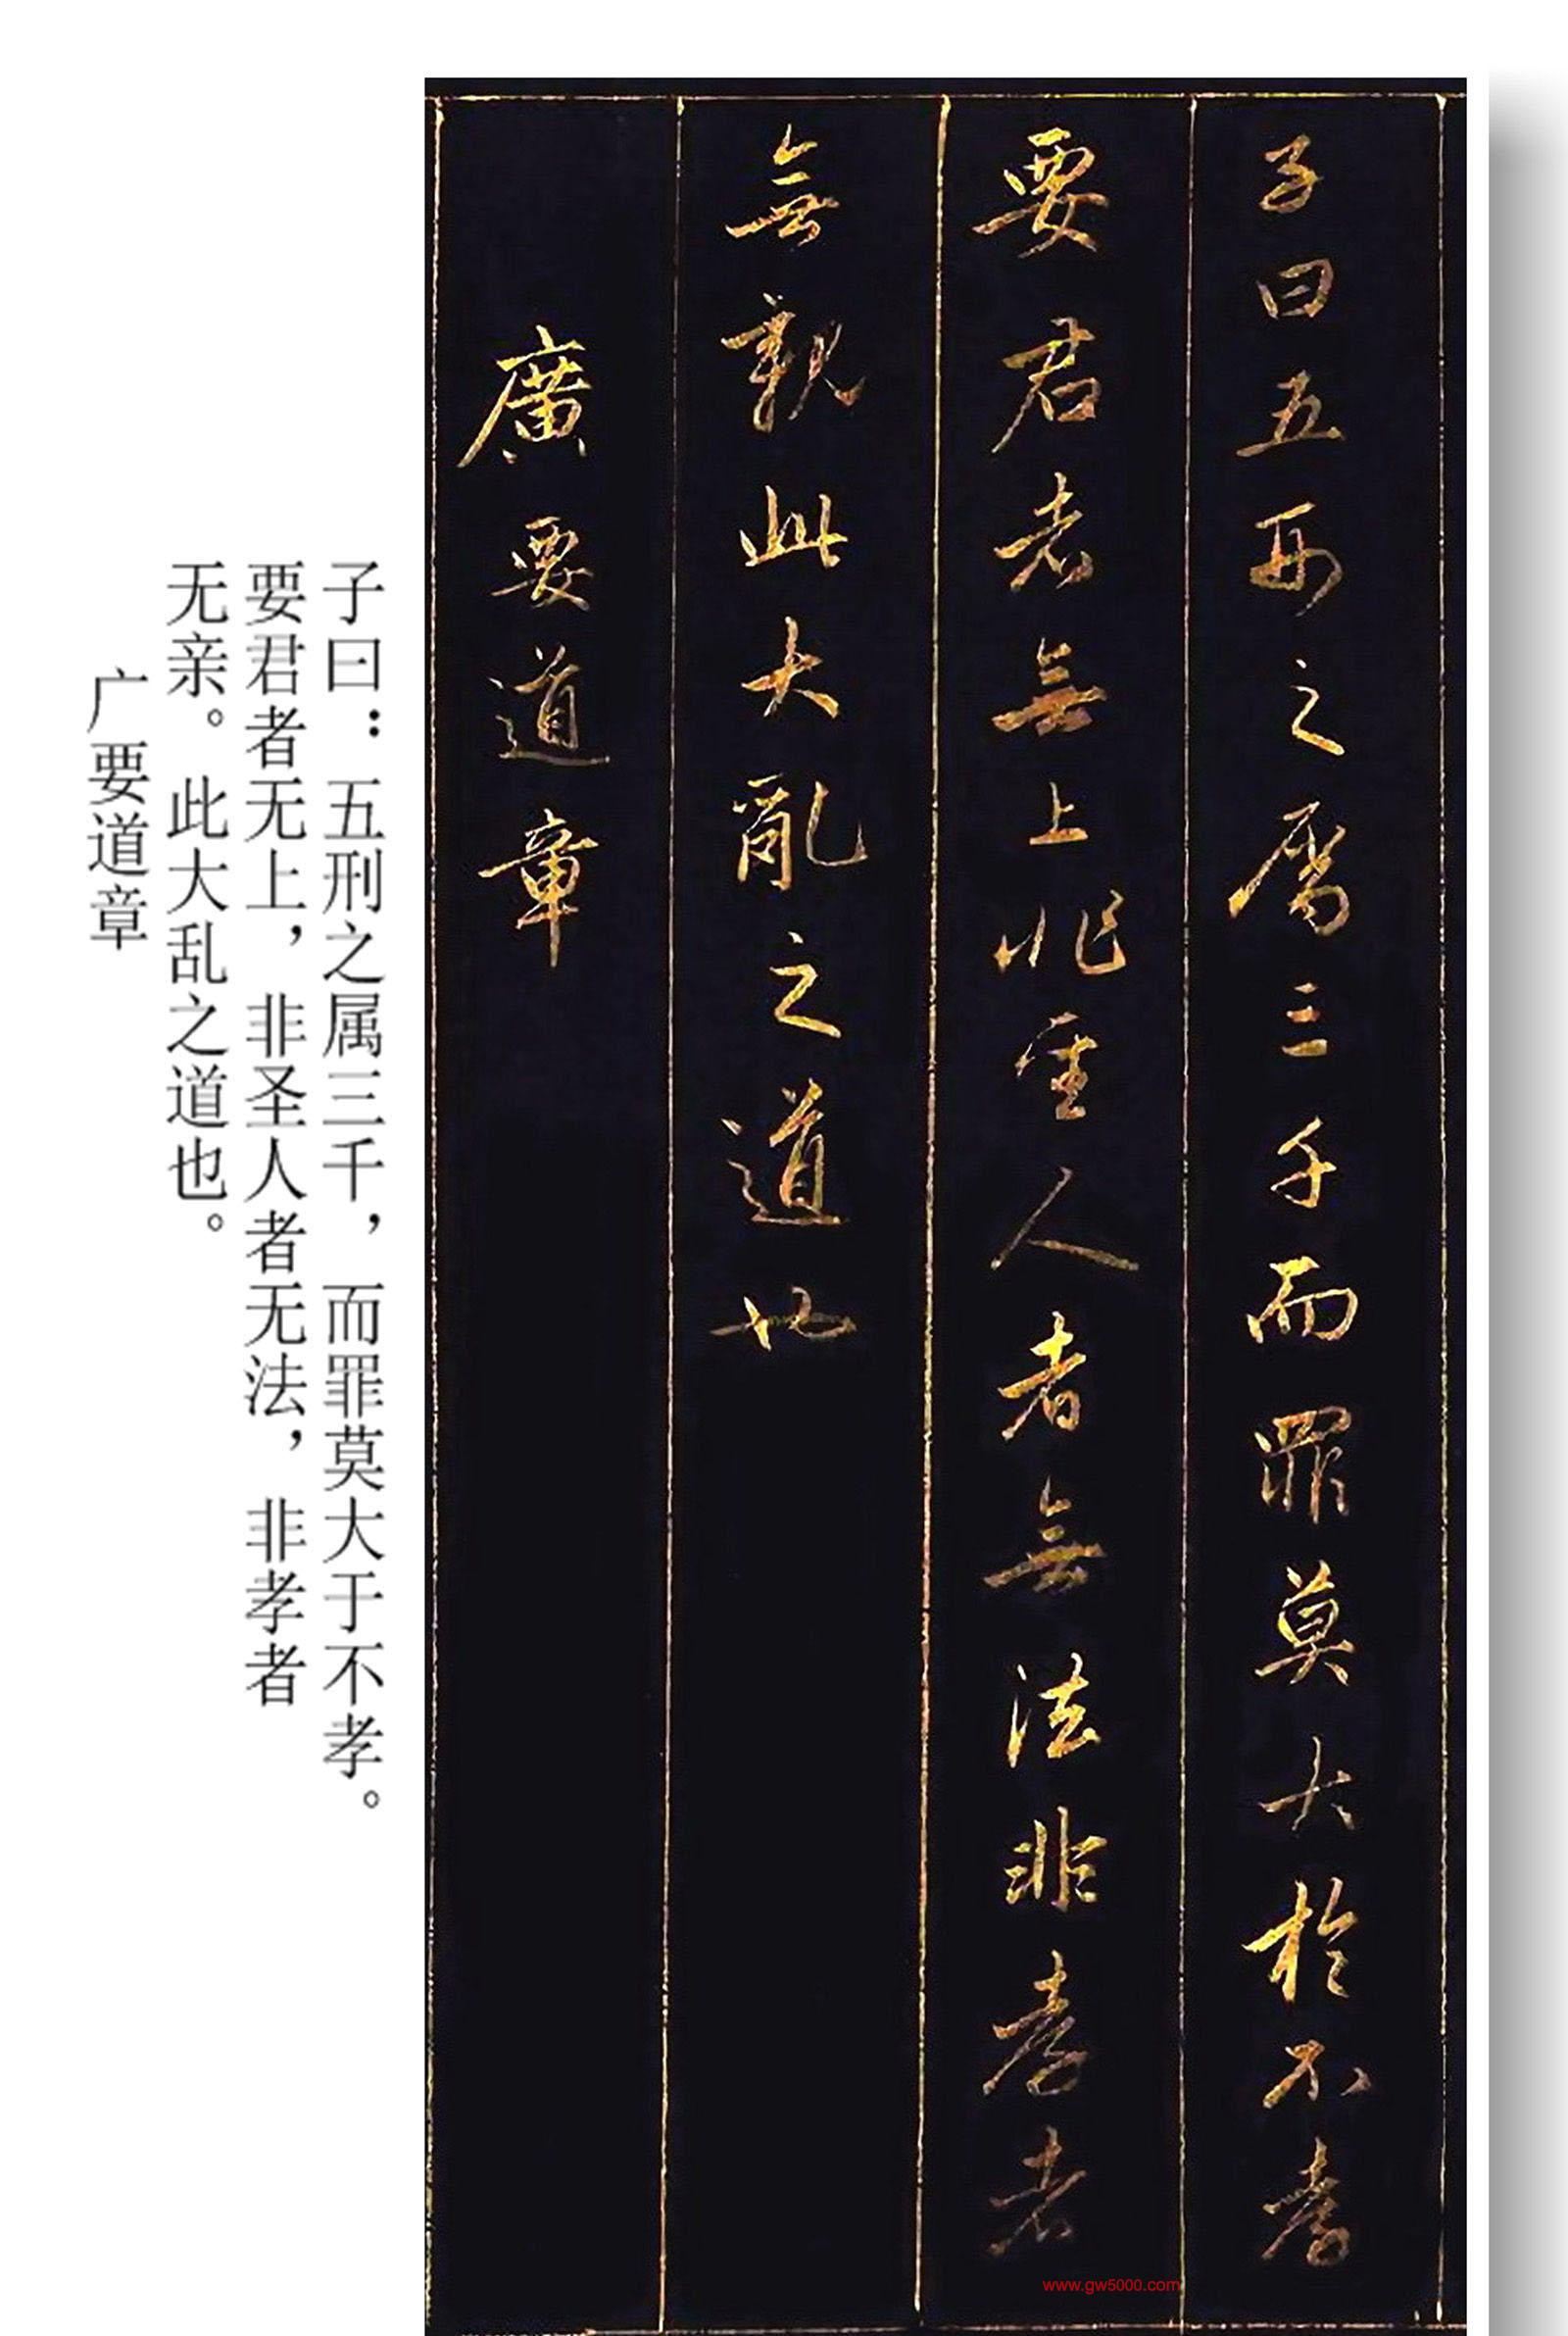 子曰五刑之属三千而罪莫大於不孝
要君者無上非聖人者無法非孝者
無親此大亂之道也
廣要道章
子曰：五刑之属三千，而罪莫大于不孝。
要君者无上，非圣人者无法，非孝者
无亲。此大乱之道也。
广要道章
www.gw5000.com